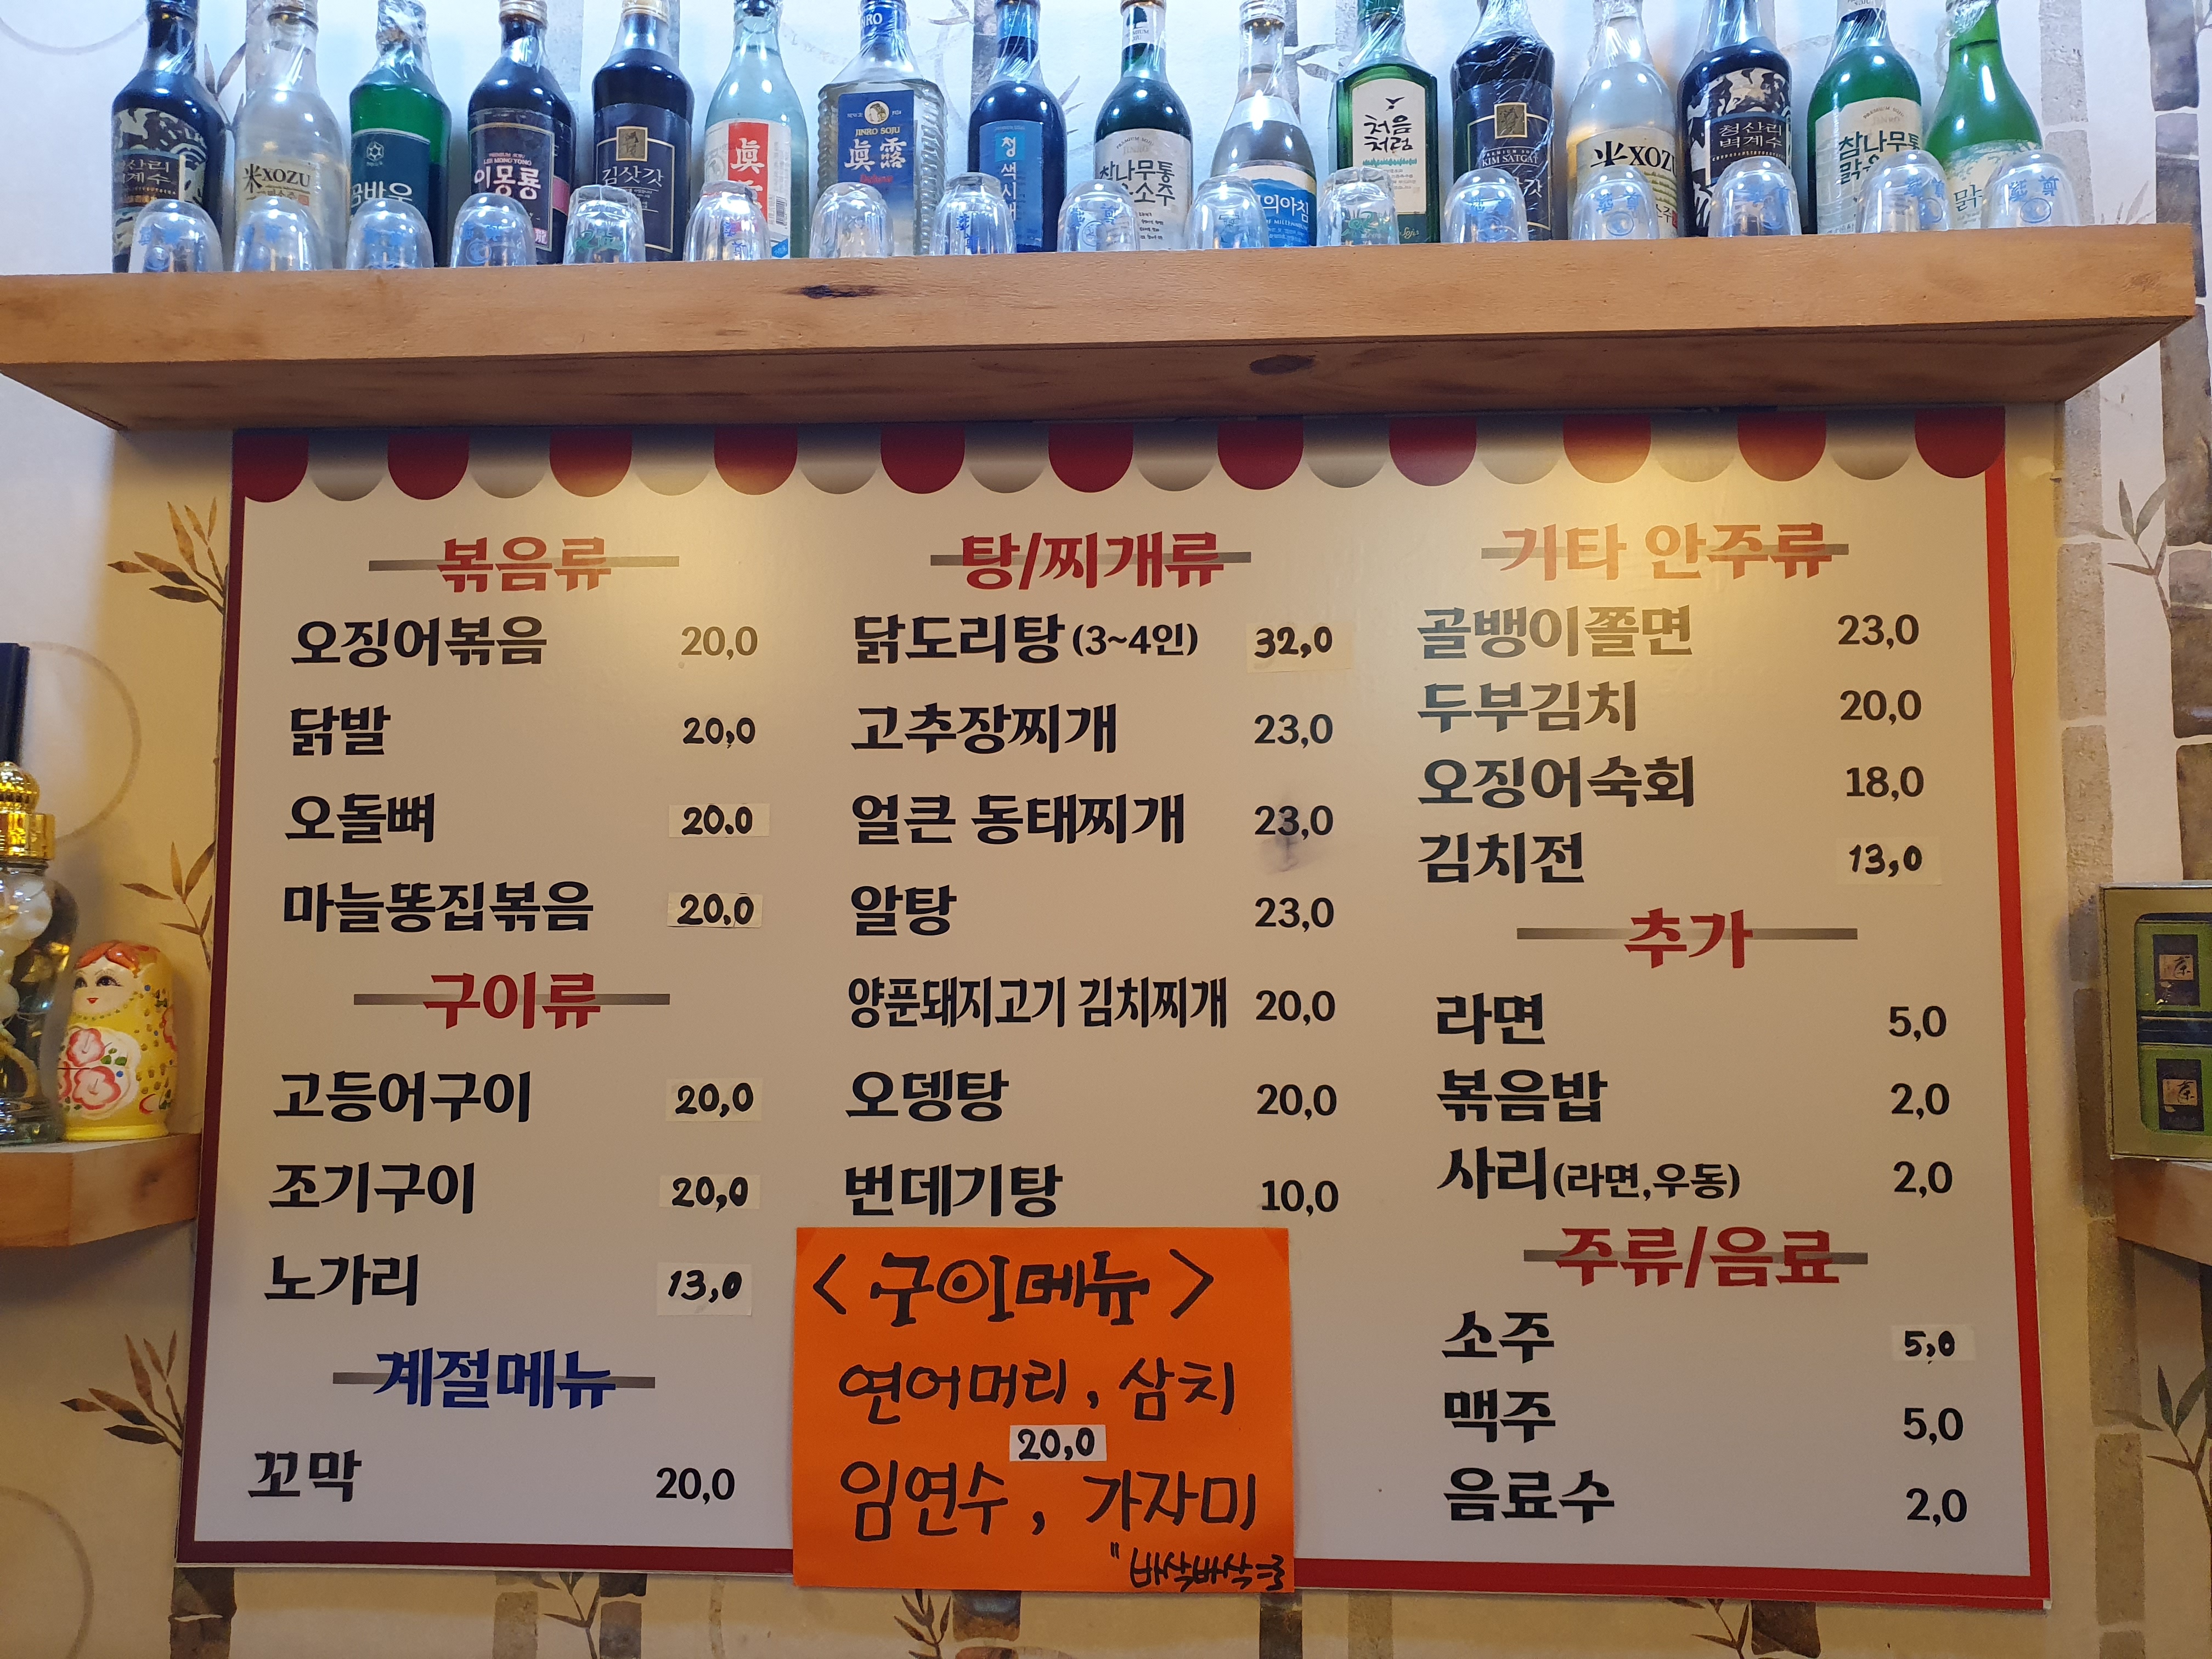 청산리
벽계수
米XOZU
이몽룡
김삿갓
眞
JINRO
JINRO SOJU
眞露
청색시대
참나무통
맑은소주
의아침
처음
처럼
KIM SATGAT
米XOZU
청산리
벽계수
참나무통
볶음류
오징어볶음 20,0
닭발 20,0
오돌뼈 20.0
마늘똥집볶음 20,0
구이류
고등어구이 20,0
조기구이 20,0
노가리 13,0
계절메뉴
꼬막 20,0
탕/찌개류
닭도리탕(3~4인) 32,0
고추장찌개 23,0
얼큰 동태찌개 23,0
알탕 23,0
양푼돼지고기 김치찌개 20,0
오뎅탕 20,0
번데기탕 10,0
<구이메뉴>
연어머리, 삼치
20,0
임연수, 가자미
기타 안주류
골뱅이쫄면 23,0
두부김치 20,0
오징어숙회 18,0
김치전 13,0
추가
라면 5,0
볶음밥 2,0
사리(라면,우동) 2,0
주류/음료
소주 5,0
맥주 5,0
음료수 2,0